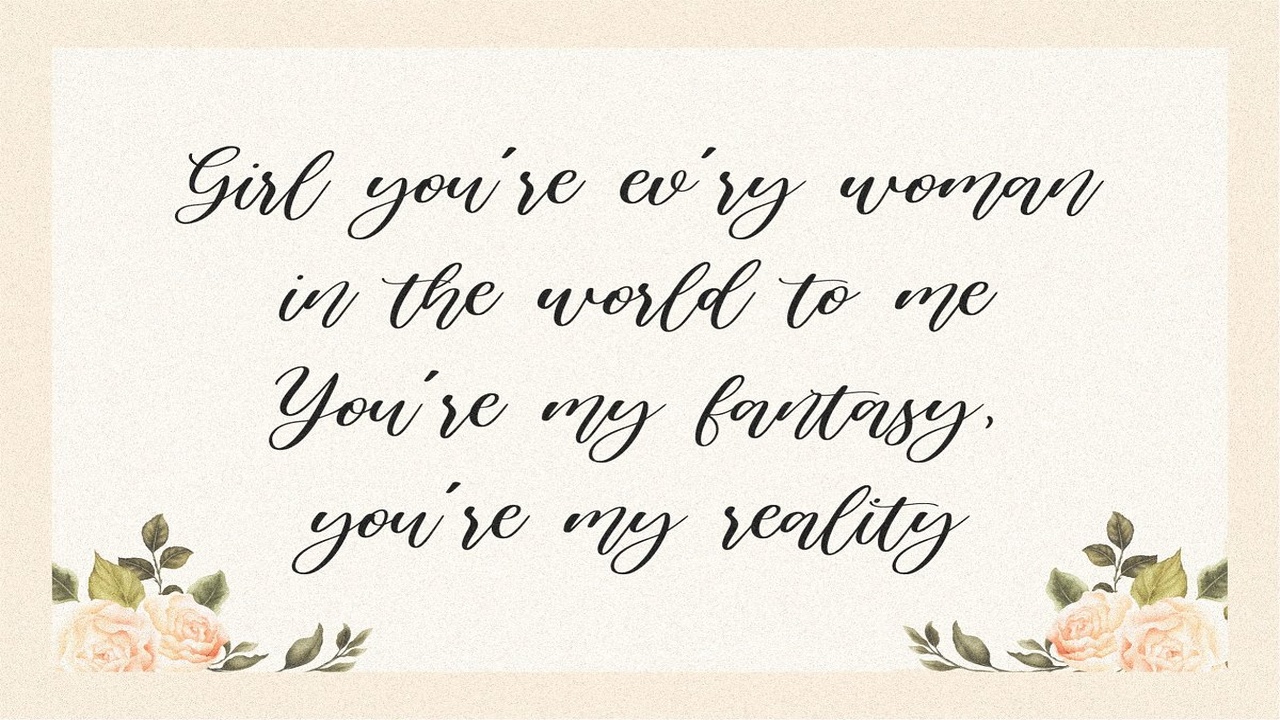 Girl you're ev'ry woman
in the world to me
You're my fantasy,
you're my reality